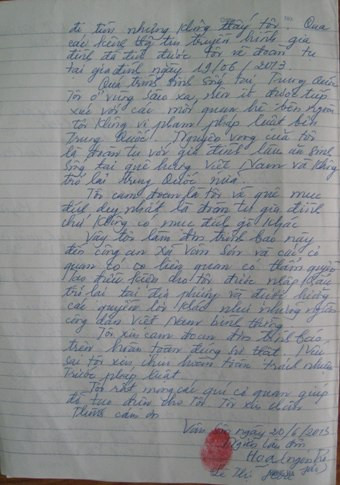 đi tìm nhưng không thấy tôi. Qua
các kênh thông tin truyền hình gia
đình đã tìm được tôi về đoàn tụ
tại gia đình ngày 19/06/2013
Quá trình sinh sống tại Trung Quốc
Tôi ở vùng sâu xa, nên ít được tiếp
xúc với các mối quan hệ bên ngoài
tôi không vi phạm pháp luật bên
Trung Quốc. Nguyện vọng của tôi
là đoàn tụ với gia đình lâu dài sinh
sống tại quê hương Việt Nam và không
trở lại trung Quốc nữa.
Tôi cam đoan là tôi về quê mục
đích duy nhất là đoàn tụ gia đình
chứ không có mục đích gì khác
Vậy tôi làm đơn trình báo này
đến công an xã Vân Sơn và các cơ
quan có liên quan có thẩm quyền
tạo điều kiện cho tôi được nhập khẩu
trở lại tại địa phương và được hưởng
các quyền lợi khác như những người
công dân Việt Nam bình thường
Tôi xin cam đoan đơn trình báo
trên hoàn toàn đúng sự thật. Nếu
sai tôi xin chịu hoàn toàn trách nhiệm
trước pháp luật
Tôi rất mong các quý cơ quan giúp
đỡ tạo điều kiện cho tôi. Tôi xin chân
thành cảm ơn
ngày 20/6/2013
Người làm đơn
Hoa
Lê Thị